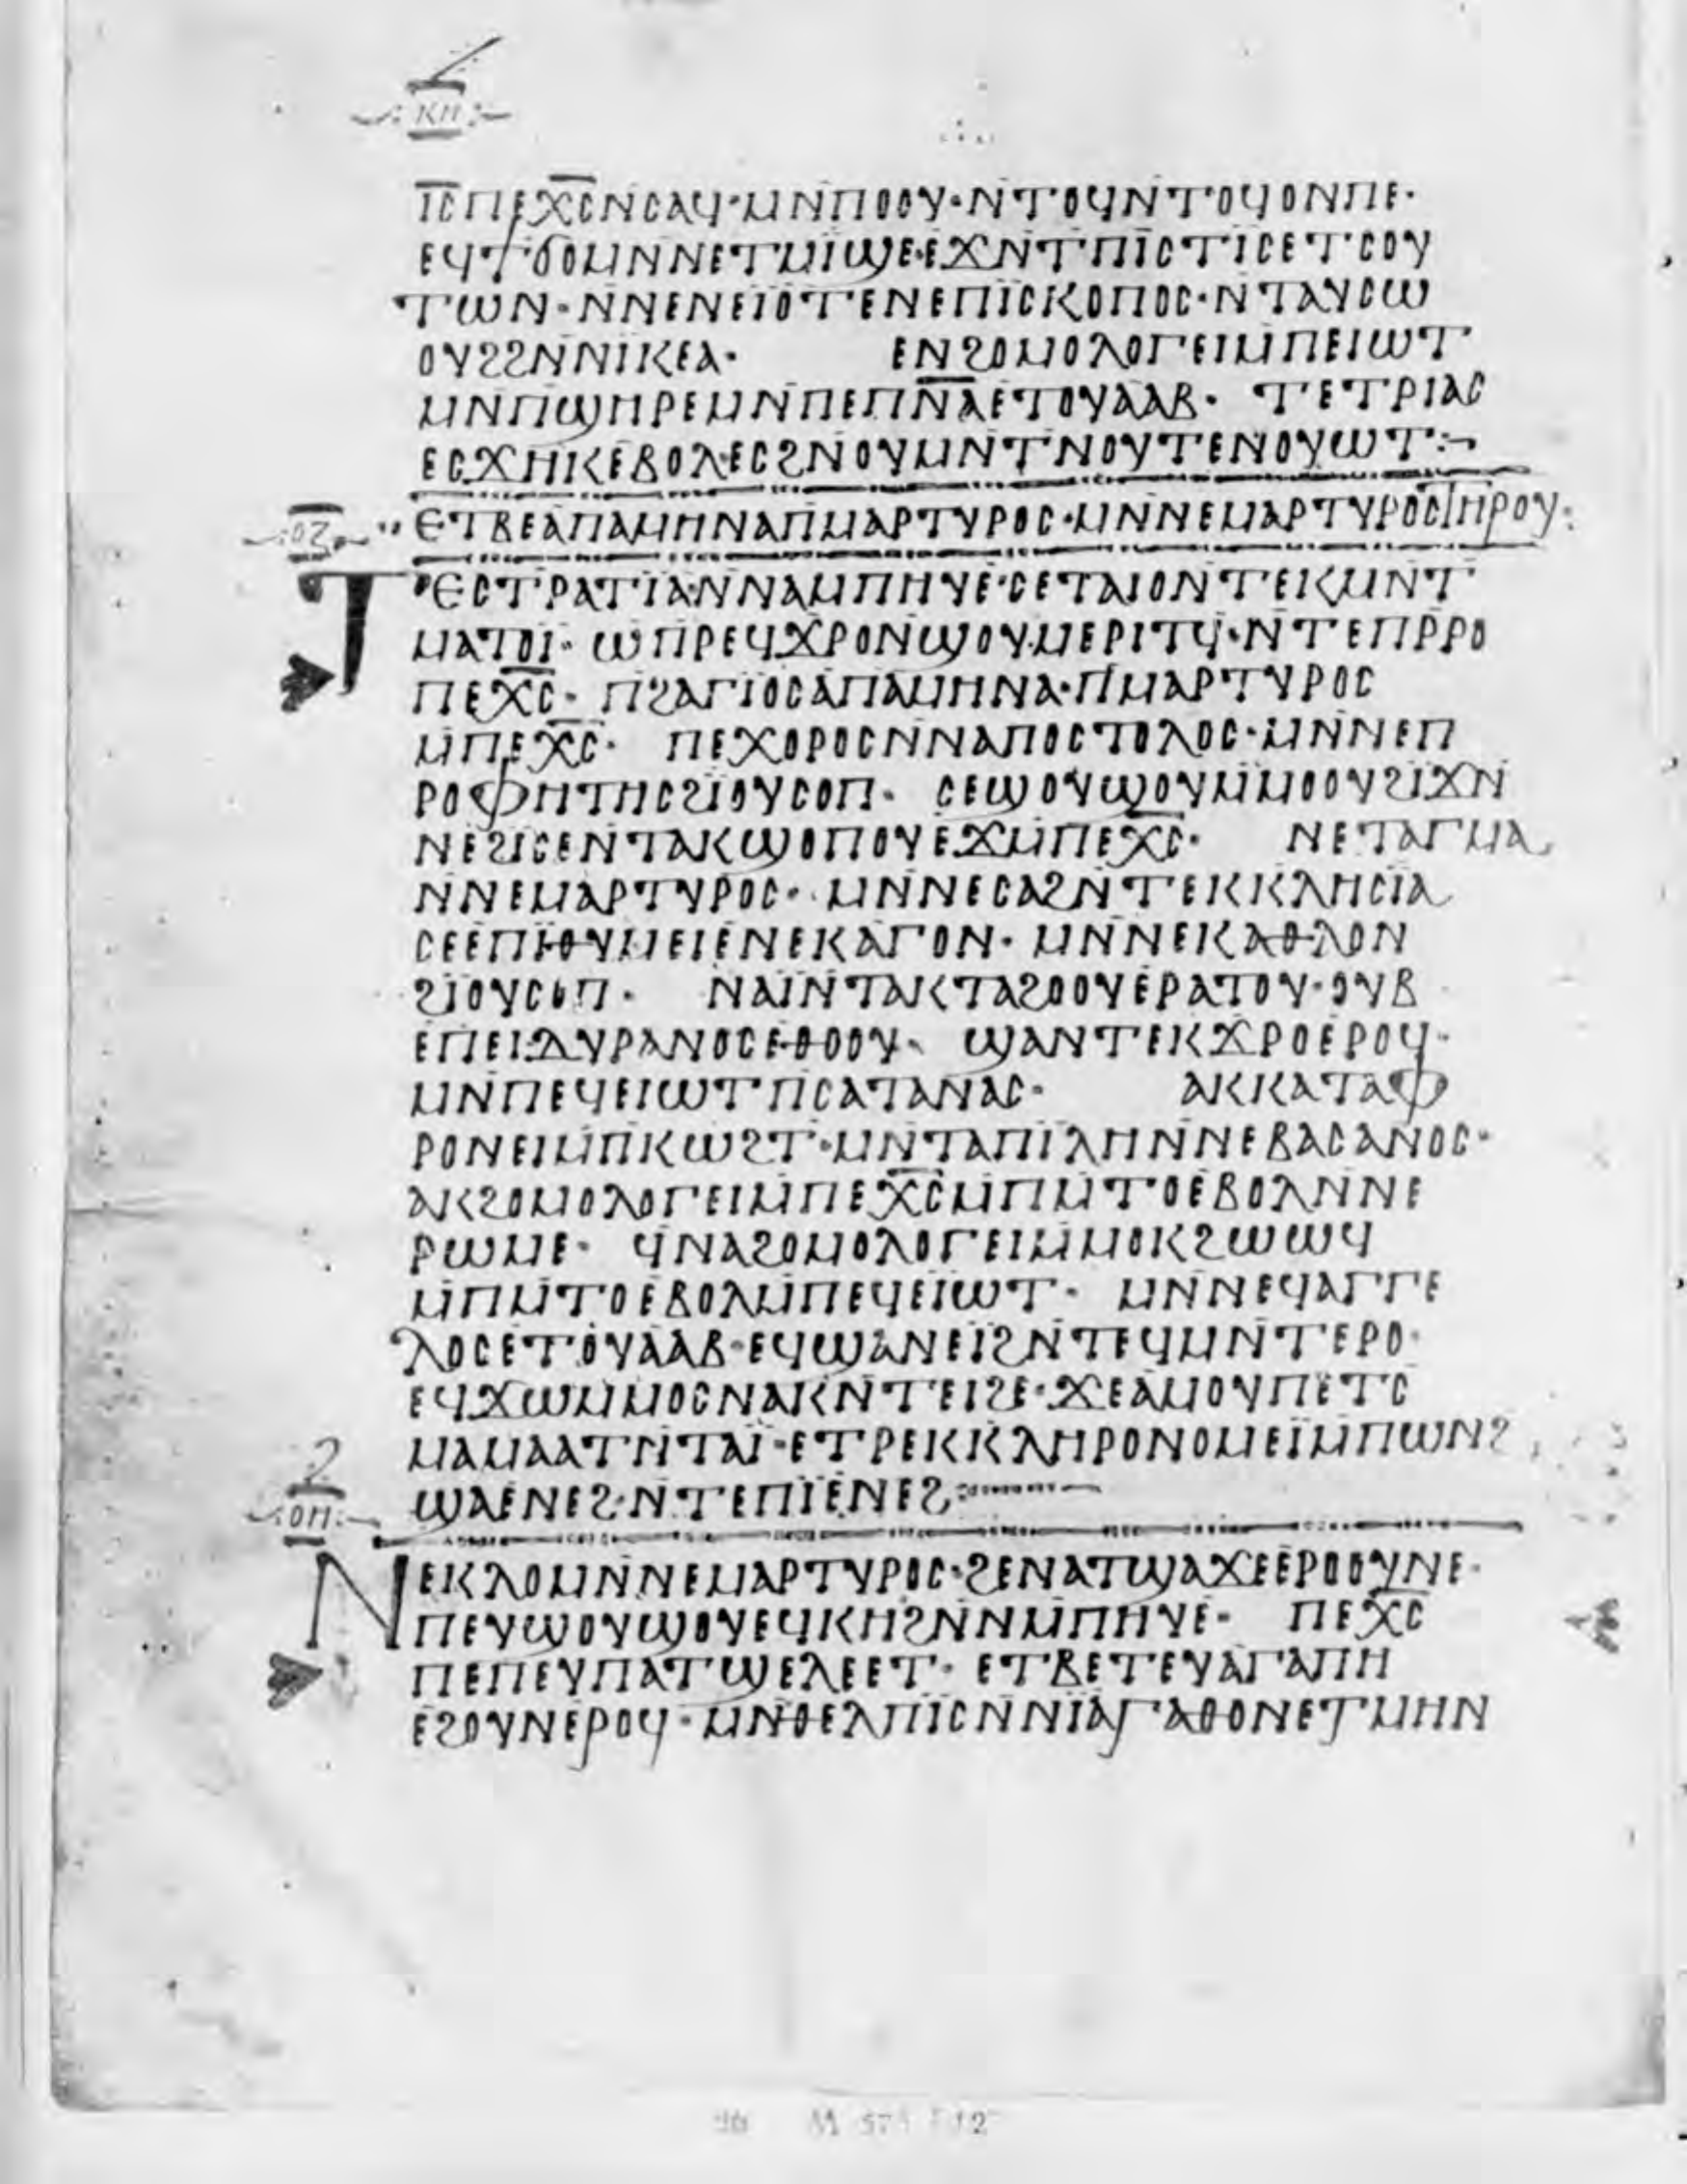 ⲕⲏ
ⲓ̅ⲥ̅ⲡⲉⲭ̅ⲥ̅ⲛ̇ⲥⲁϥ·ⲙⲛ̇ⲡⲟⲟⲩ·ⲛ̇ⲧⲟϥⲛ̇ⲧⲟϥⲟⲛⲡⲉ·
ⲉϥϯϭⲟⲙⲛ̇ⲛⲉⲧⲙⲓϣⲉ·ⲉϫⲛ̇ⲧⲡⲓⲥⲧⲓⲥⲉⲧⲥⲟⲩ
ⲧⲱⲛ·ⲛ̇ⲛⲉⲛⲉⲓⲟⲧⲉⲛⲉⲡⲓⲥⲕⲟⲡⲟⲥ·ⲛ̇ⲧⲁⲩⲥⲱ
ⲟⲩϩϩⲛ̇ⲛⲓⲕⲉⲁ· ⲉⲛϩⲟⲙⲟⲗⲟⲅⲉⲓⲙ̇ⲡⲉⲓⲱⲧ
ⲙⲛ̇ⲡϣⲏⲣⲉⲙⲛ̇ⲡⲉⲡ̅ⲛ̅ⲁ̅ⲉⲧⲟⲩⲁⲁⲃ· ⲧⲉⲧⲣⲓⲁⲥ
ⲉⲥϫⲏⲕⲉⲃⲟⲗ·ⲉⲥϩⲛ̇ⲟⲩⲙⲛ̇ⲧⲛⲟⲩⲧⲉⲛⲟⲩⲱⲧ:ⲻ
ⲟⲍ ⲉⲧⲃⲉⲁⲡⲁⲙⲏⲛⲁⲡⲙⲁⲣⲧⲩⲣⲟⲥ·ⲙⲛ̇ⲛⲉⲙⲁⲣⲧⲩⲣⲟⲥⲧⲏⲣⲟⲩ:
ⲧⲉⲥⲧⲣⲁⲧⲓⲁ·ⲛ̇ⲛⲁⲙⲡⲏⲩⲉ·ⲥⲉⲧⲁⲓⲟⲛ̇ⲧⲉⲕⲙⲛ̇ⲧ
ⲙⲁⲧⲟⲓ· ⲱⲡⲣⲉϥϫⲣⲟⲛ̇ϣⲟⲩⲙⲉⲣⲓⲧϥ·ⲛ̇ⲧⲉⲡⲣ̇ⲣⲟ
ⲡⲉⲭ̅ⲥ̅· ⲡϩⲁⲅⲓⲟⲥⲁⲡⲁⲙⲏⲛⲁ·ⲡⲙⲁⲣⲧⲩⲣⲟⲥ
ⲙ̇ⲡⲉⲭ̅ⲥ̅· ⲡⲉⲭⲟⲣⲟⲥⲛ̇ⲛⲁⲡⲟⲥⲧⲟⲗⲟⲥ·ⲙⲛ̇ⲛⲉⲡ
ⲣⲟⲫⲏⲧⲏⲥϩⲓⲟⲩⲥⲟⲡ· ⲥⲉϣⲟⲩϣⲟⲩⲙ̇ⲙⲟⲟⲩϩⲓϫⲛ̇
ⲛⲉϩⲓⲥⲉⲛ̇ⲧⲁⲕϣⲟⲡⲟⲩⲉϫⲙ̇ⲡⲉⲭ̅ⲥ̅· ⲛⲉⲧⲁⲅⲙⲁ
ⲛ̇ⲛⲉⲙⲁⲣⲧⲩⲣⲟⲥ· ⲙⲛ̇ⲛⲉⲥⲁϩⲛ̇ⲧⲉⲕⲕⲗⲏⲥⲓⲁ
ⲥⲉⲉⲡⲓⲑⲩⲙⲉⲓⲉⲛⲉⲕⲁⲅⲟⲛ· ⲙⲛ̇ⲛⲉⲕⲁⲑⲗⲟⲛ
ϩⲓⲟⲩⲥⲟⲡ· ⲛⲁⲓⲛ̇ⲧⲁⲕⲧⲁϩⲟⲟⲩⲉⲣⲁⲧⲟⲩ·ⲟⲩⲃ
ⲉⲡⲉⲓⲇⲩⲣⲁⲛⲟⲥⲉⲑⲟⲟⲩ· ϣⲁⲛⲧⲉⲕϫⲣⲟⲉⲣⲟϥ·
ⲙⲛ̇ⲡⲉϥⲉⲓⲱⲧⲡⲥⲁⲧⲁⲛⲁⲥ· ⲁⲕⲕⲁⲧⲁⲫ
ⲣⲟⲛⲉⲓⲙ̇ⲡⲕⲱϩⲧ·ⲙⲛ̇ⲧⲁⲡⲓⲗⲏⲛ̇ⲛⲉⲃⲁⲥⲁⲛⲟⲥ·
ⲁⲕϩⲟⲙⲟⲗⲟⲅⲉⲓⲙ̇ⲡⲉⲭ̅ⲥ̅ⲙ̇ⲡⲙ̇ⲧⲟⲉⲃⲟⲗⲛ̇ⲛⲉ
ⲣⲱⲙⲉ· ϥⲛⲁϩⲟⲙⲟⲗⲟⲅⲉⲓⲙ̇ⲙⲟⲕϩⲱⲱϥ
ⲙ̇ⲡⲙ̇ⲧⲟⲉⲃⲟⲗⲙ̇ⲡⲉϥⲉⲓⲱⲧ· ⲙⲛ̇ⲛⲉϥⲁⲅⲅⲉ
ⲗⲟⲥⲉⲧⲟⲩⲁⲁⲃ·ⲉϥϣⲁⲛⲉⲓϩⲛ̇ⲧⲉϥⲙⲛ̇ⲧⲉⲣⲟ·
ⲉϥϫⲱⲙ̇ⲙⲟⲥⲛⲁⲕⲛ̇ⲧⲉⲓϩⲉ·ϫⲉⲁⲙⲟⲩⲡⲉⲧⲥ
ⲙⲁⲙⲁⲁⲧⲛ̇ⲧⲁⲓ·ⲉⲧⲣⲉⲕⲕⲗⲏⲣⲟⲛⲟⲙⲉⲓⲙ̇ⲡⲱⲛϩ
ϣⲁⲉⲛⲉϩ·ⲛ̇ⲧⲉⲡⲓⲉⲛⲉϩ:
ⲟⲏ
ⲛⲉⲕⲗⲟⲙⲛ̇ⲛⲉⲙⲁⲣⲧⲩⲣⲟⲥ·ϩⲉⲛⲁⲧϣⲁϫⲉⲉⲣⲟⲟⲩⲛⲉ·
ⲡⲉⲩϣⲟⲩϣⲟⲩⲉϥⲕⲏϩⲛ̇ⲛⲙ̇ⲡⲏⲩⲉ· ⲡⲉⲭ̅ⲥ̅
ⲡⲉⲡⲉⲩⲡⲁⲧϣⲉⲗⲉⲉⲧ· ⲉⲧⲃⲉⲧⲉⲩⲁⲅⲁⲡⲏ
ⲉϩⲟⲩⲛⲉⲣⲟϥ·ⲙⲛ̇ⲑⲉⲗⲡⲓⲥⲛ̇ⲛⲓⲁⲅⲁⲑⲟⲛⲉⲧⲙⲏⲛ